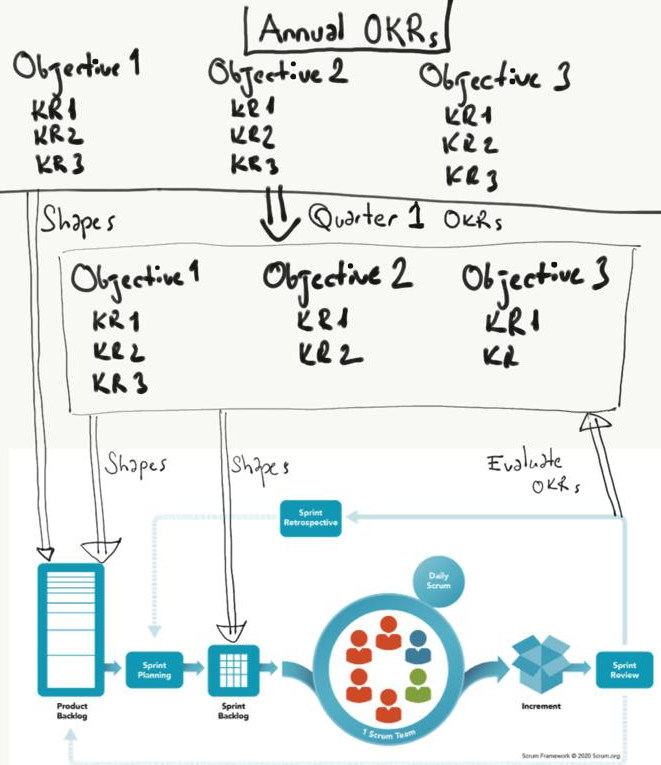 Annual OKRs
Objective 1
KR1
KR2
KR3
Objective 2
KR1
KR2
KR3
Objective 3
KR1
KR2
KR3
Shapes
Quarter 1 OKRs
Objective 1
KR1
KR2
KR3
Objective 2
KR1
KR2
Objective 3
KR1
KR
Shapes
Shapes
Evaluate
OKRs
Sprint
Retrospective
Daily
Scrum
Sprint
Planning
Sprint
Review
Product
Backlog
Sprint
Backlog
1 Scrum Team
Increment
Scrum Framework © 2020 Scrum.org